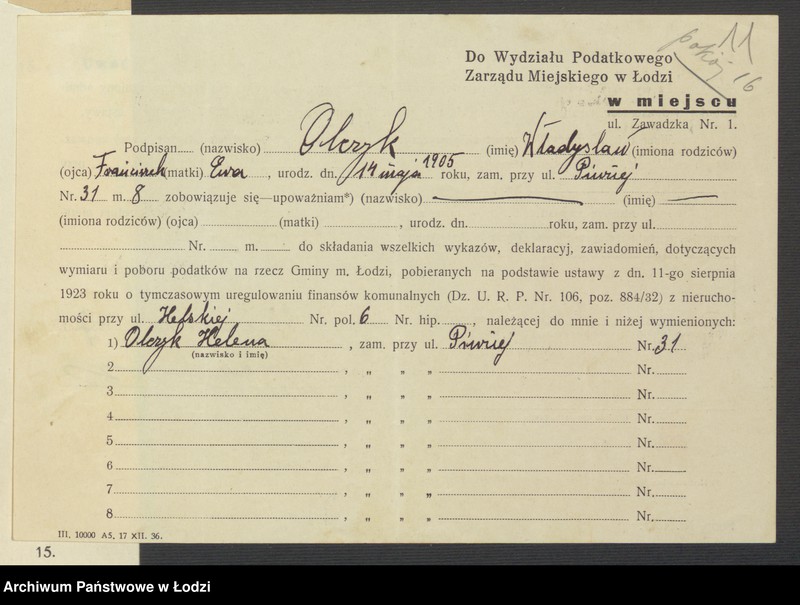 11
pokój 16
Do Wydziału Podatkowego
Zarządu Miejskiego w Łodzi
w miejscu
ul. Zawadzka Nr. 1.
Podpisan...... (nazwisko) Olczyk (imię) Władysław (imiona rodziców)
(ojca) Franciszek (matki) Ewa, urodz. dn. 14 maja 1905 roku, zam. przy ul. Piwnej
Nr. 31 m. 8 zobowiązuje się—upoważniam*) (nazwisko) — (imię) —
(imiona rodziców) (ojca) (matki) , urodz. dn. roku, zam. przy ul.
Nr. m. do składania wszelkich wykazów, deklaracyj, zawiadomień, dotyczących
wymiaru i poboru podatków na rzecz Gminy m. Łodzi, pobieranych na podstawie ustawy z dn. 11-go sierpnia
1923 roku o tymczasowym uregulowaniu finansów komunalnych (Dz. U. R. P. Nr. 106, poz. 884/32) z nierucho-
mości przy ul. Helskiej Nr. pol. 6 Nr. hip. , należącej do mnie i niżej wymienionych:
1) Olczyk Helena , zam. przy ul. Piwnej Nr. 31
(nazwisko i imię)
2 , „ „ „ Nr.
3 , „ „ „ Nr.
4 , „ „ „ Nr.
5 , „ „ „ Nr.
6 , „ „ „ Nr.
7 , „ „ „ Nr.
8 , „ „ „ Nr.
III. 10000 A5. 17 XII. 36.
15.
Archiwum Państwowe w Łodzi